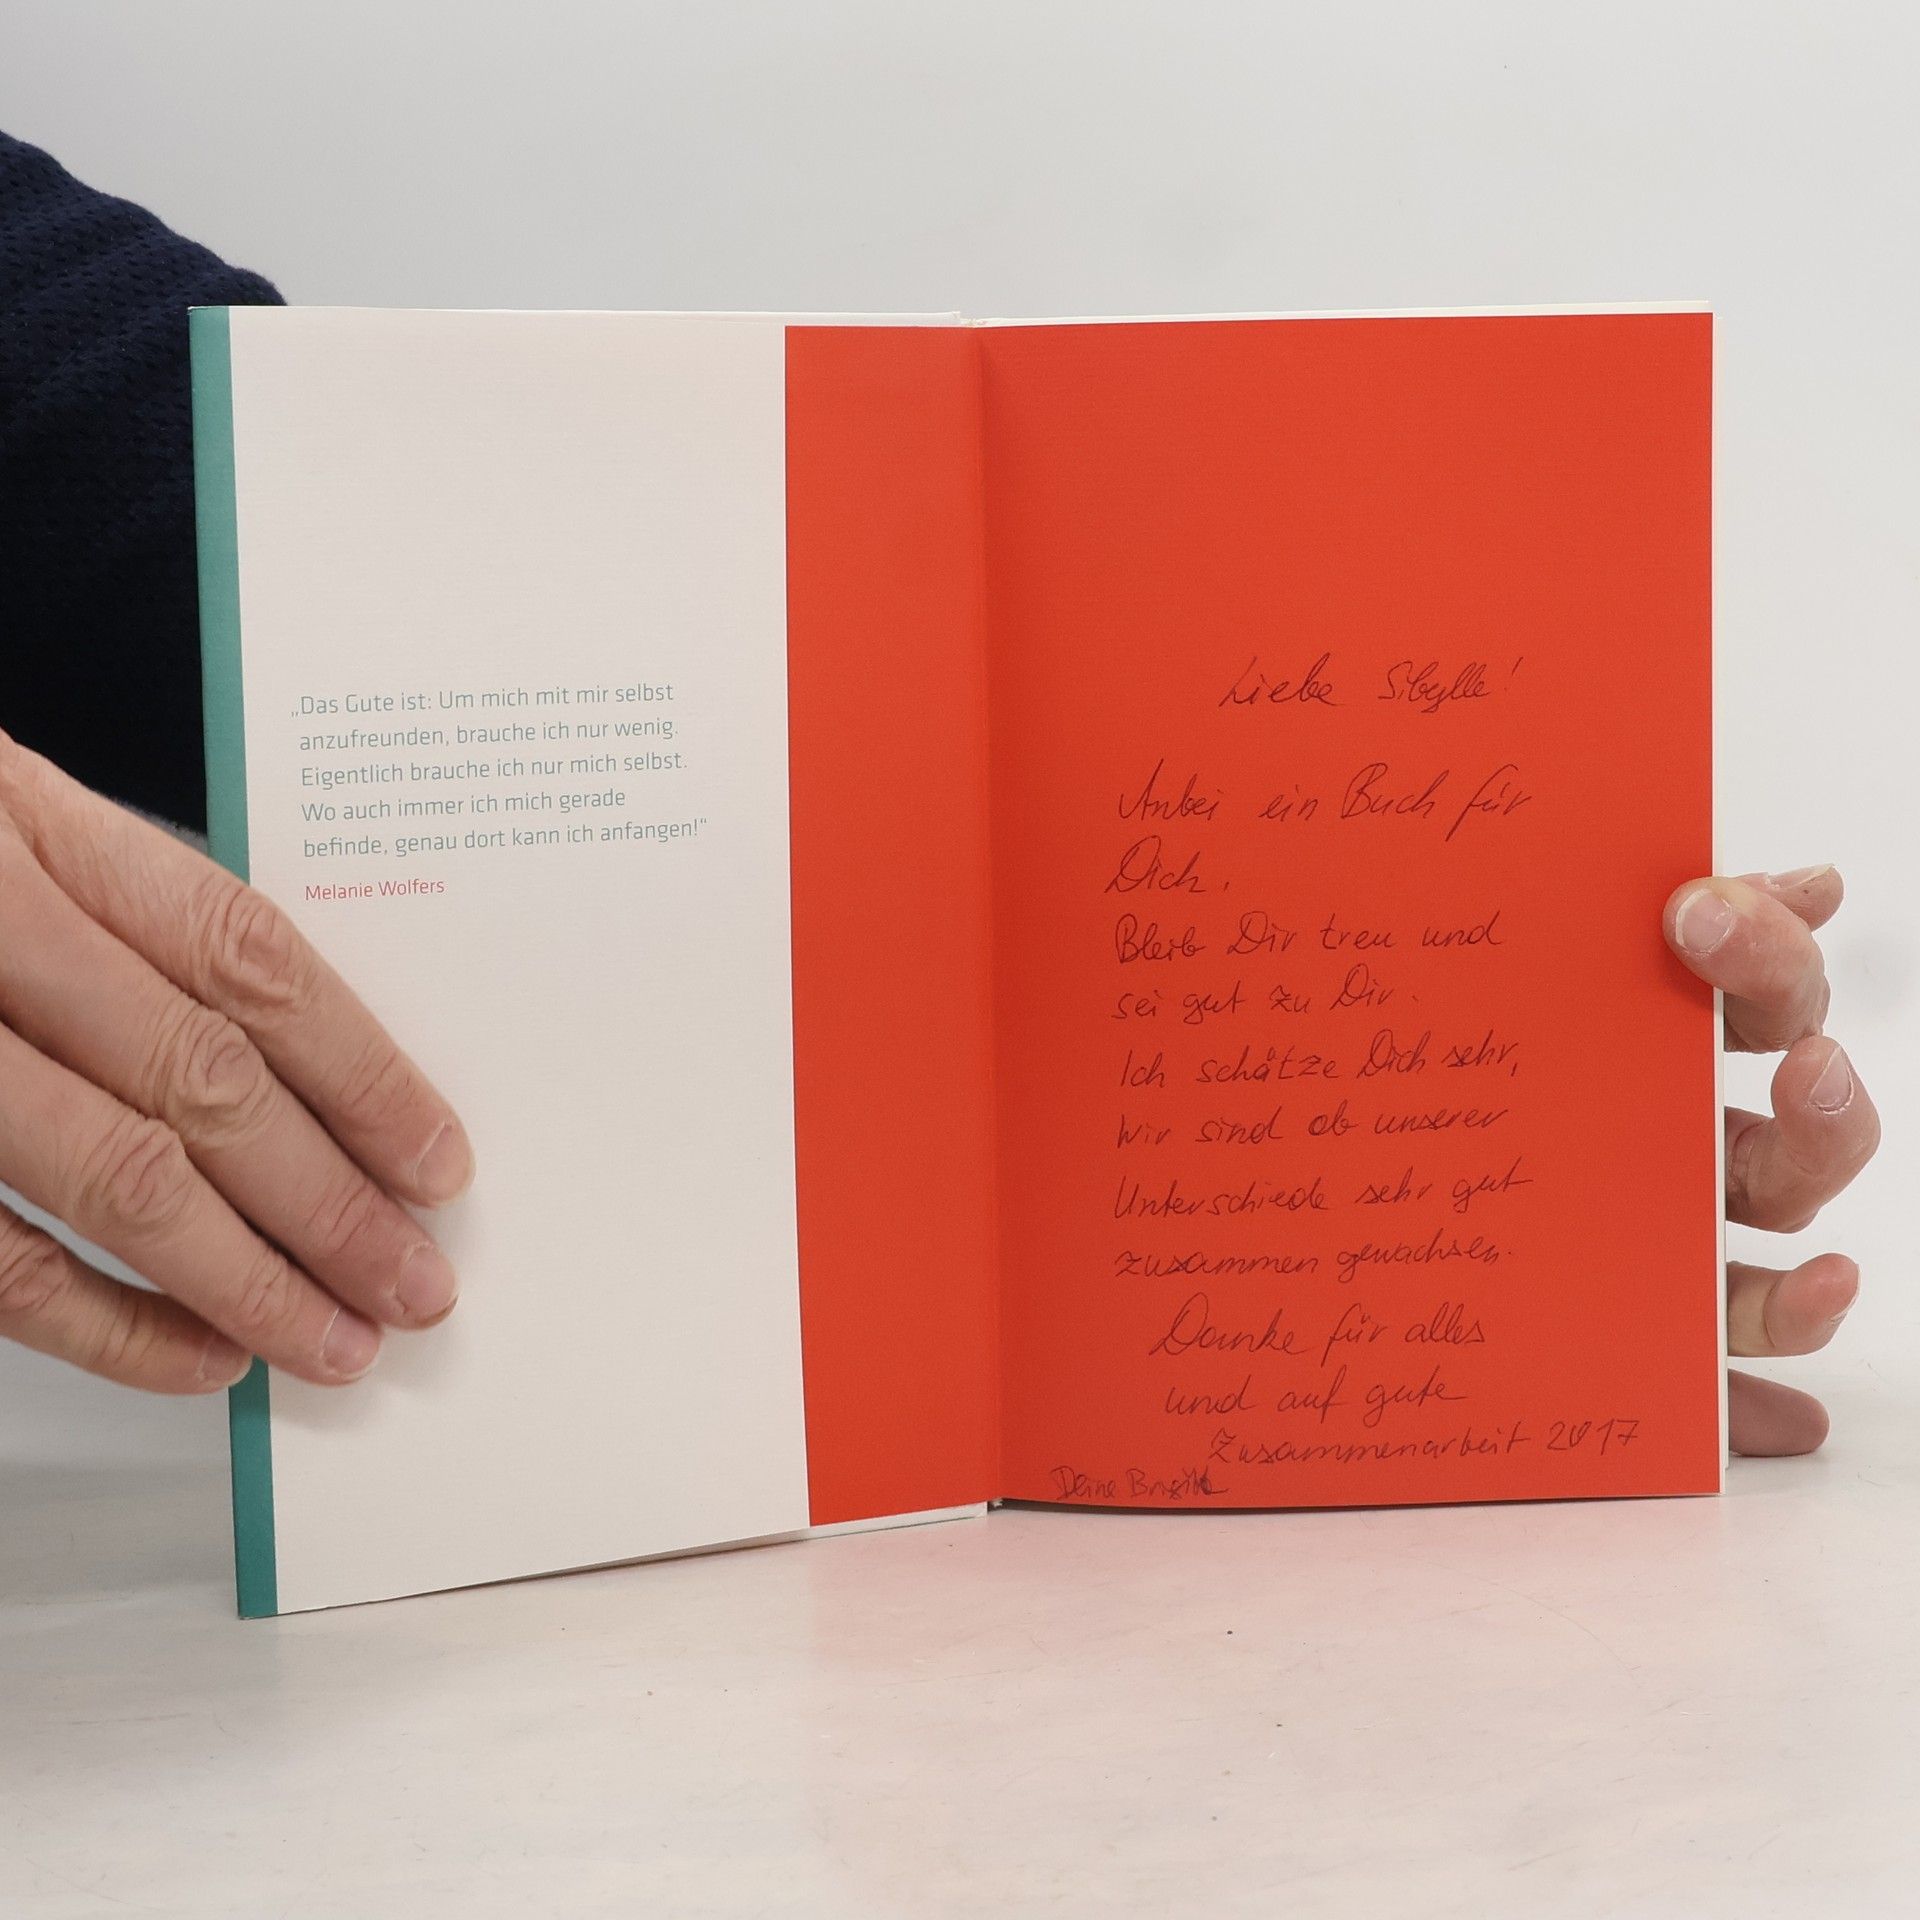 „Das Gute ist: Um mich mit mir selbst
anzufreunden, brauche ich nur wenig.
Eigentlich brauche ich nur mich selbst.
Wo auch immer ich mich gerade
befinde, genau dort kann ich anfangen!“
Melanie Wolfers
Liebe Sibylle!
Anbei ein Buch für
Dich.
Bleib Dir treu und
sei gut zu Dir.
Ich schätze Dich sehr,
Wir sind ob unserer
Unterschiede sehr gut
zusammen gewachsen.
Danke für alles
und auf gute
Zusammenarbeit 2017
Deine